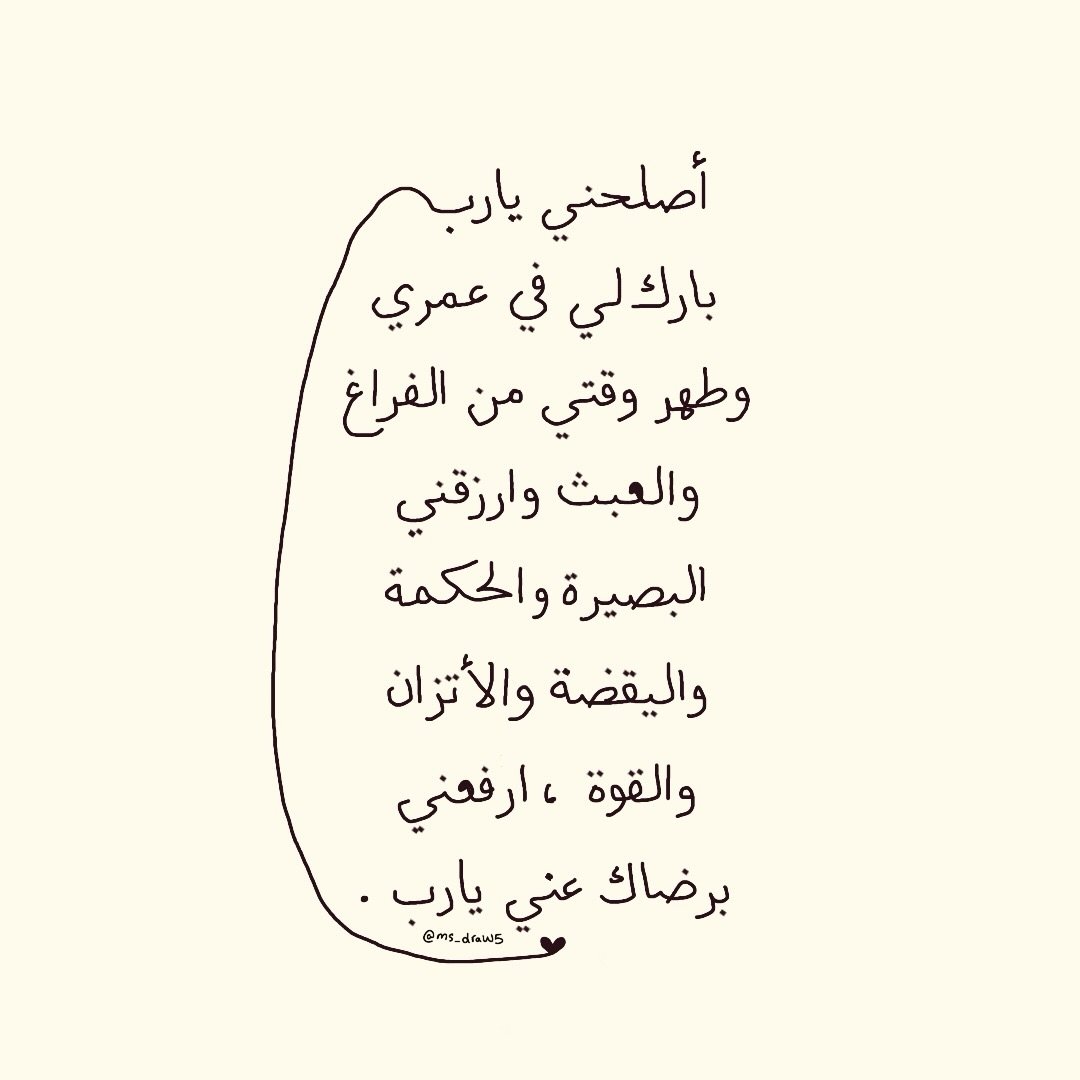 أصلحني يارب
بارك لي في عمري
وطهر وقتي من الفراغ
والعبث وارزقني
البصيرة والحكمة
واليقضة والأتزان
والقوة ، ارفعني
برضاك عني يارب .
@ms_draw5